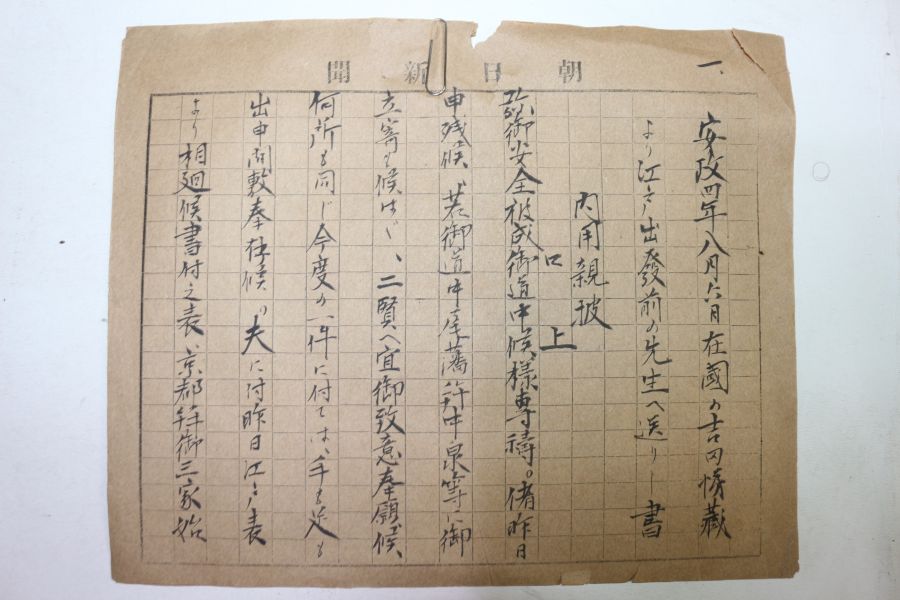 朝日新聞
一、
安政四年八月六日在國の吉田悌藏
より江戸出發前の先生へ送りし書
内用親披
口上
弥御安全被成御道中候様専祷。偖昨日
申残候、若御道中座藩許中泉等へ御
立寄も候はゞ、二賢へ宜御致意奉願候、
何所も同じ今度の一件に付ては、手も足も
出申間敷奉存候。夫に付昨日江戸表
より相廻候書付之表、京都幷御三家始